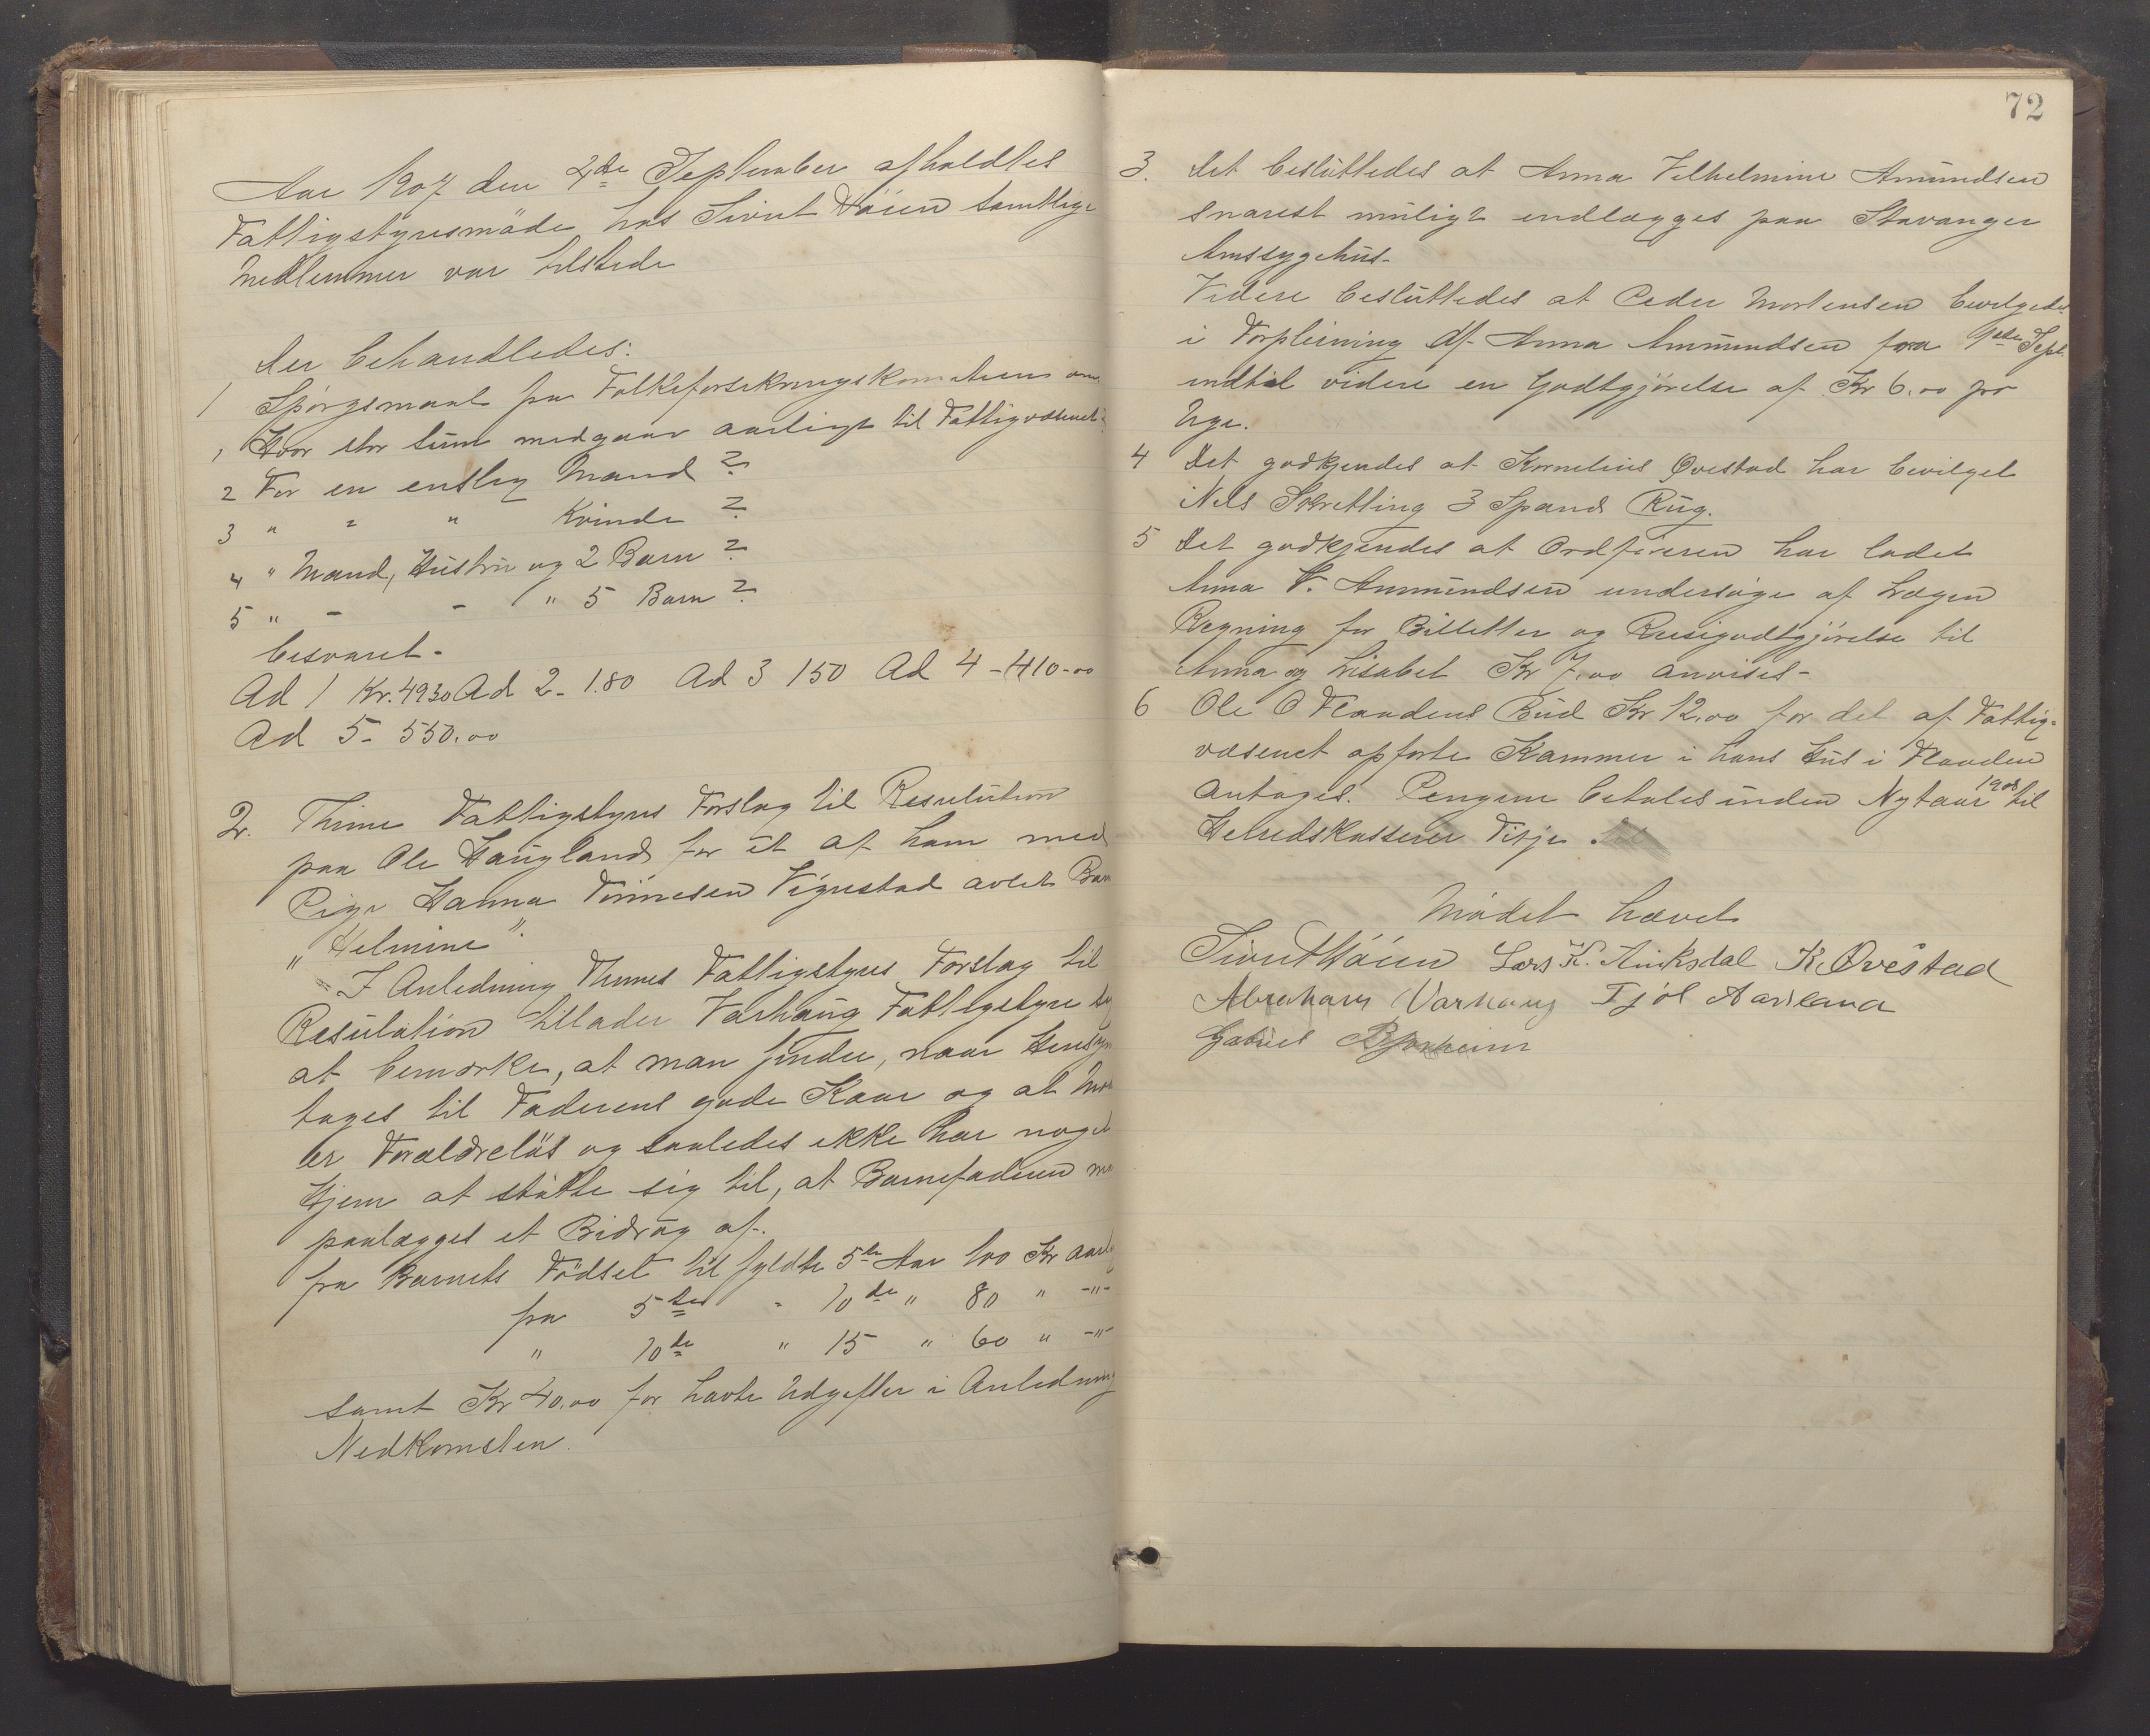 Aar 1907 den 4de September afholdtes
Fattigstyresmøde hos Sivert Høien samtlige
Medlemmer var tilstede
Der behandledes:
1 Spörgsmaal fra Folkeforsikringskomiteen om
1 Hvor stor Sum medgaar aarligt til Fattigvæsenet?
2 For en enslig Mand?
3 " " " Kvinde?
4 " Mand, Hustru og 2 Barn?
5 " - - " 5 Barn?
besvaret-
Ad 1 Kr. 4930 Ad 2 - 1.80 Ad 3 150 Ad 4 - 410-00
Ad 5 - 550.00
2. Thime Fattigstyres Forslag til Resulution
paa Ole Haugland for et af ham med
Pige Hanna Tönnesen Vignestad avlet Barn
"Helmine".
I Anledning Thimes Fattigstyres Forslag til
Resulution tillader Varhaug Fattigstyre sig
at bemærke, at man finder, naar Hensyn
tages til Faderens gode Kaar og at Mod
er Forældreløs og saaledes ikke har noget
Hjem at støtte sig til, at Barnefaderen maa
paalægges et Bidrag af.
fra Barnets Födsel til fyldte 5te Aar 100 Kr aarlig
fra 5te - 10de " 80 " -"-
" 10de " 15 " 60 " -"-
samt Kr 40.00 for havte Udgifter i Anledning
Nedkomsten.
72
3. Det besluttedes at Anna Vilhelmine Amundsen
snarest muligt indlægges paa Stavanger
Amssygehus-
Videre besluttedes at Peder Mortensen bevilgedes
i Forpleining af Anna Ammundsen fra 1ste Sept.
indtil videre en Godtgjörelse af Kr 6.00 pr
Uge.
4 Det godkjendes at Kornelius Ovestad har bevilget
Nils Skretting 3 Spand Rug.
5 Det godkjendes at Ordføreren har ladet
Anna V. Ammundsen undersøge af Lægen
Regning for Billetter og Reisegodtgjörelse til
Anna og Lisabet Kr 7.00 anvises-
6 Ole O Flaadens Bud Kr 12.00 for det af Fattig=
væsenet opførte Kammer i hans Hus i Flaaden
antages. Pengene betales inden Nytaar 1908 til
Heredskasserer Titje
Mødet hævet
Sivert Høien Lars K. Auksdal K. Ovestad
Abraham Varhaug Tjøl Aarsland
Gabriel Bjorheim